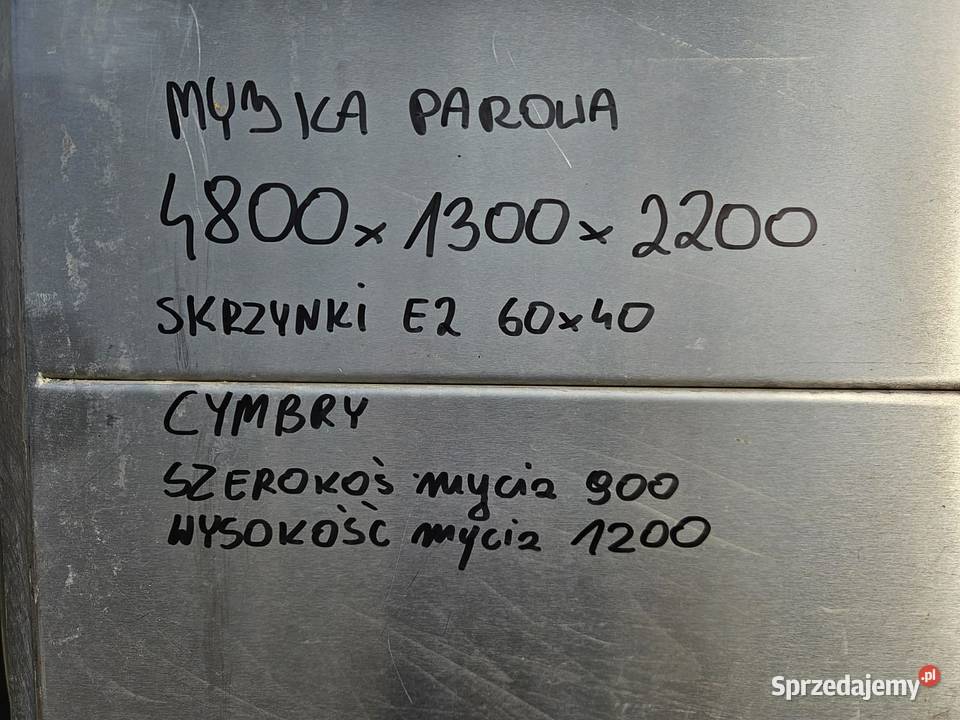 MYJKA PAROWA
4800 x 1300 x 2200
SKRZYNKI E2 60x40
CYMBRY
SZEROKOŚ mycia 900
WYSOKOŚĆ mycia 1200
Sprzedajemy.pl